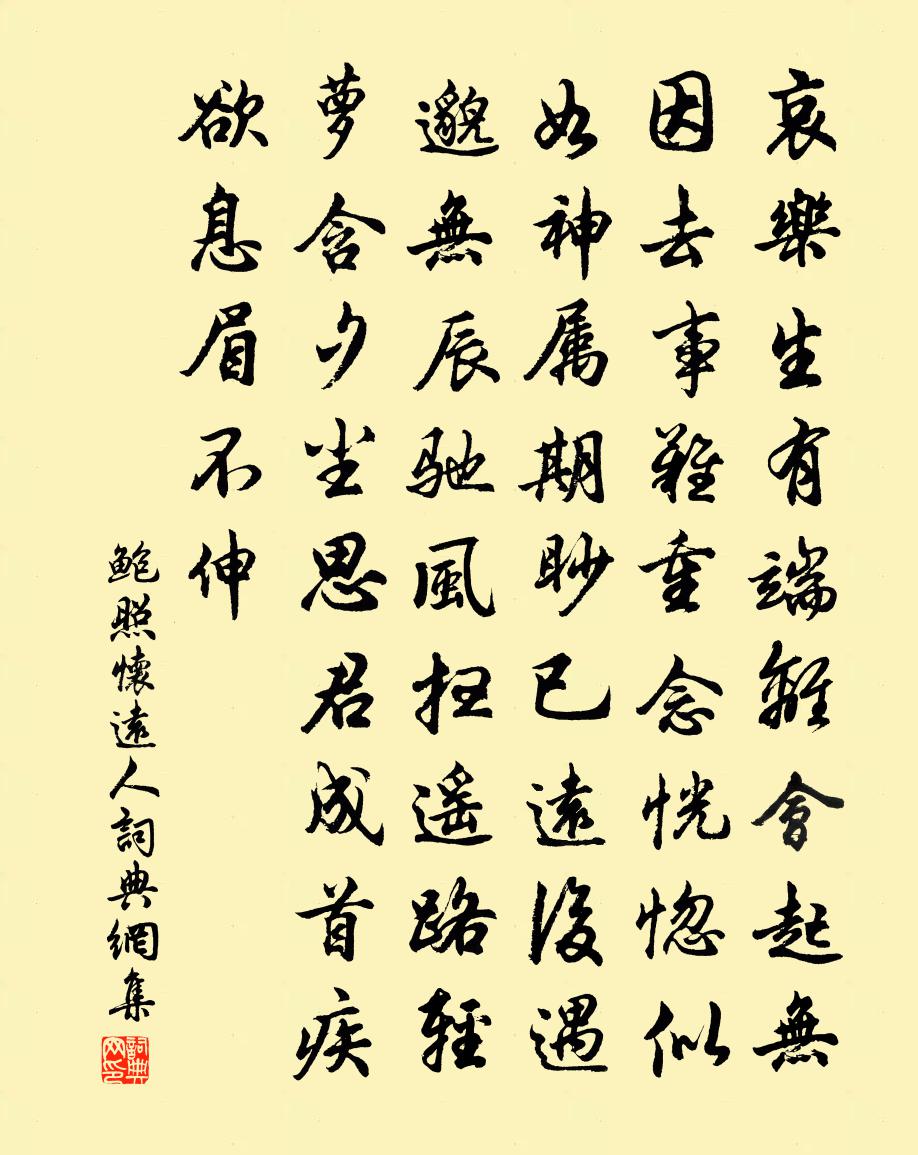 哀樂生有端離會起無
因去事難重念恍惚似
如神属期眇已遠後遇
邈無辰馳風掃遥路輕
萝含夕尘思君成首疾
欲息眉不伸
鮑照懷遠人詞典網集
詞典网印